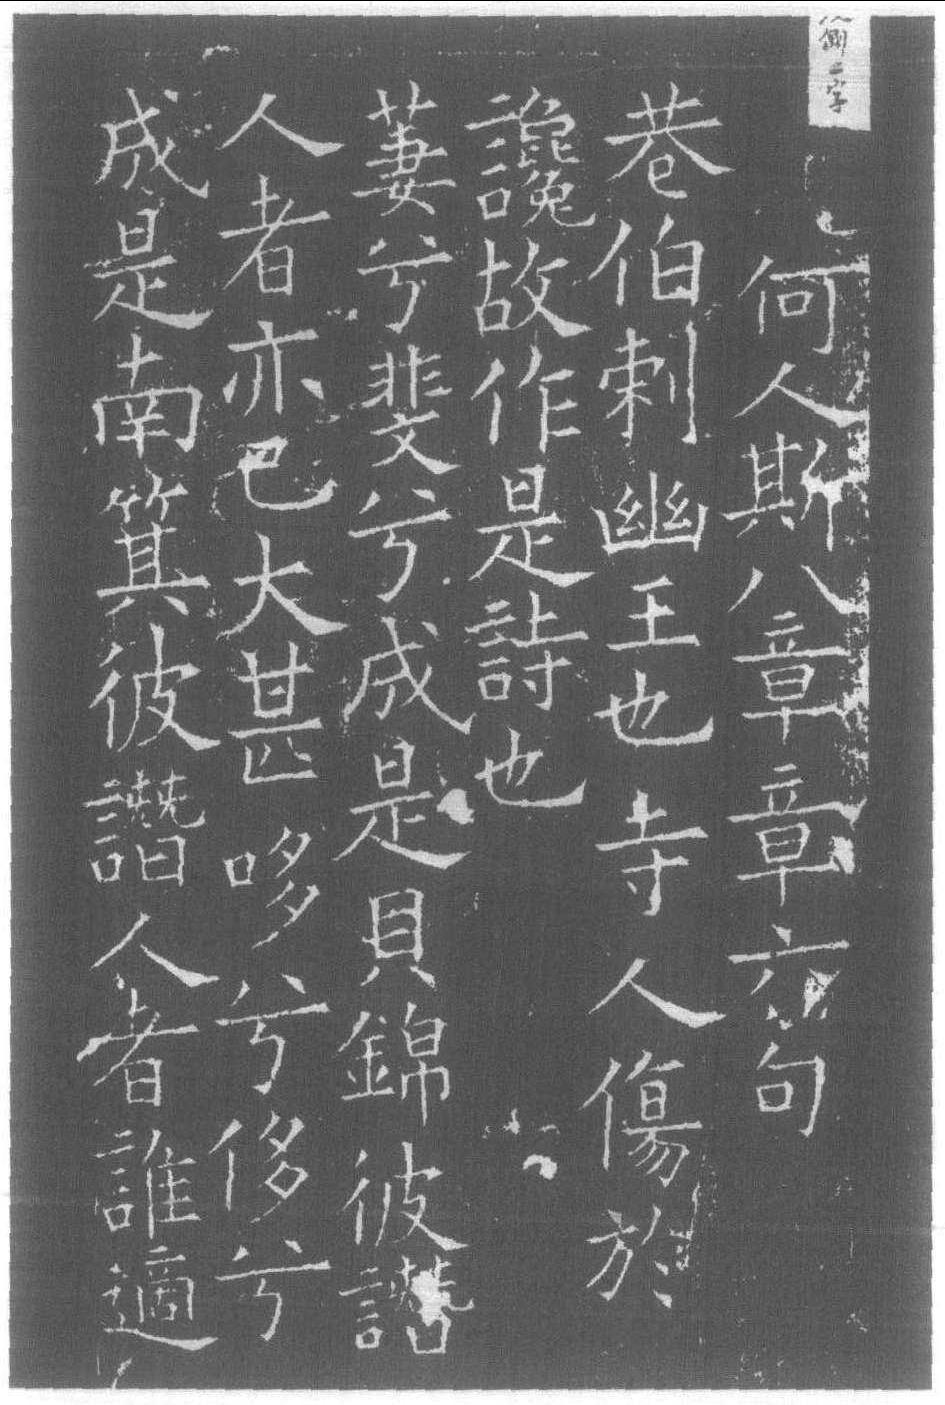 側二字
何人斯八章章六句
巷伯刺幽王也寺人傷於
讒故作是詩也
萋兮斐兮成是貝錦彼譖
人者亦已大甚哆兮侈兮
成是南箕彼譖人者誰適